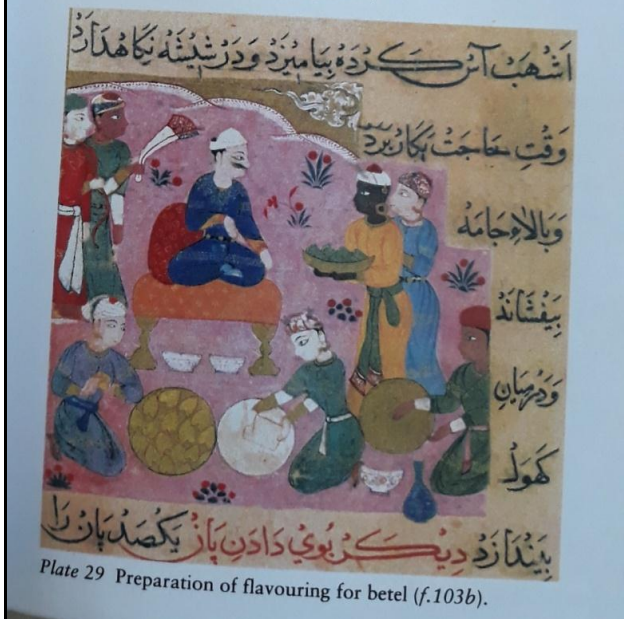 اَشْهَبْ آسْ کَردَهْ بِیَامِیزَدْ وَدَرْ شِیشَهْ نِکَاهدَارَدْ
وَقْتِ حَاجَتْ بَکَارْ بَرَدْ
وَبَالاءِ جَامَهْ
بِیَفْشَانَدْ
وَدَرْمِیَانِ
کَهَولْ
بِیَندَازَدْ دِیکَرْ بُویْ دَادَنِ پَانْ یَکصَدْ پَانْ رَا
Plate 29 Preparation of flavouring for betel (f.103b).